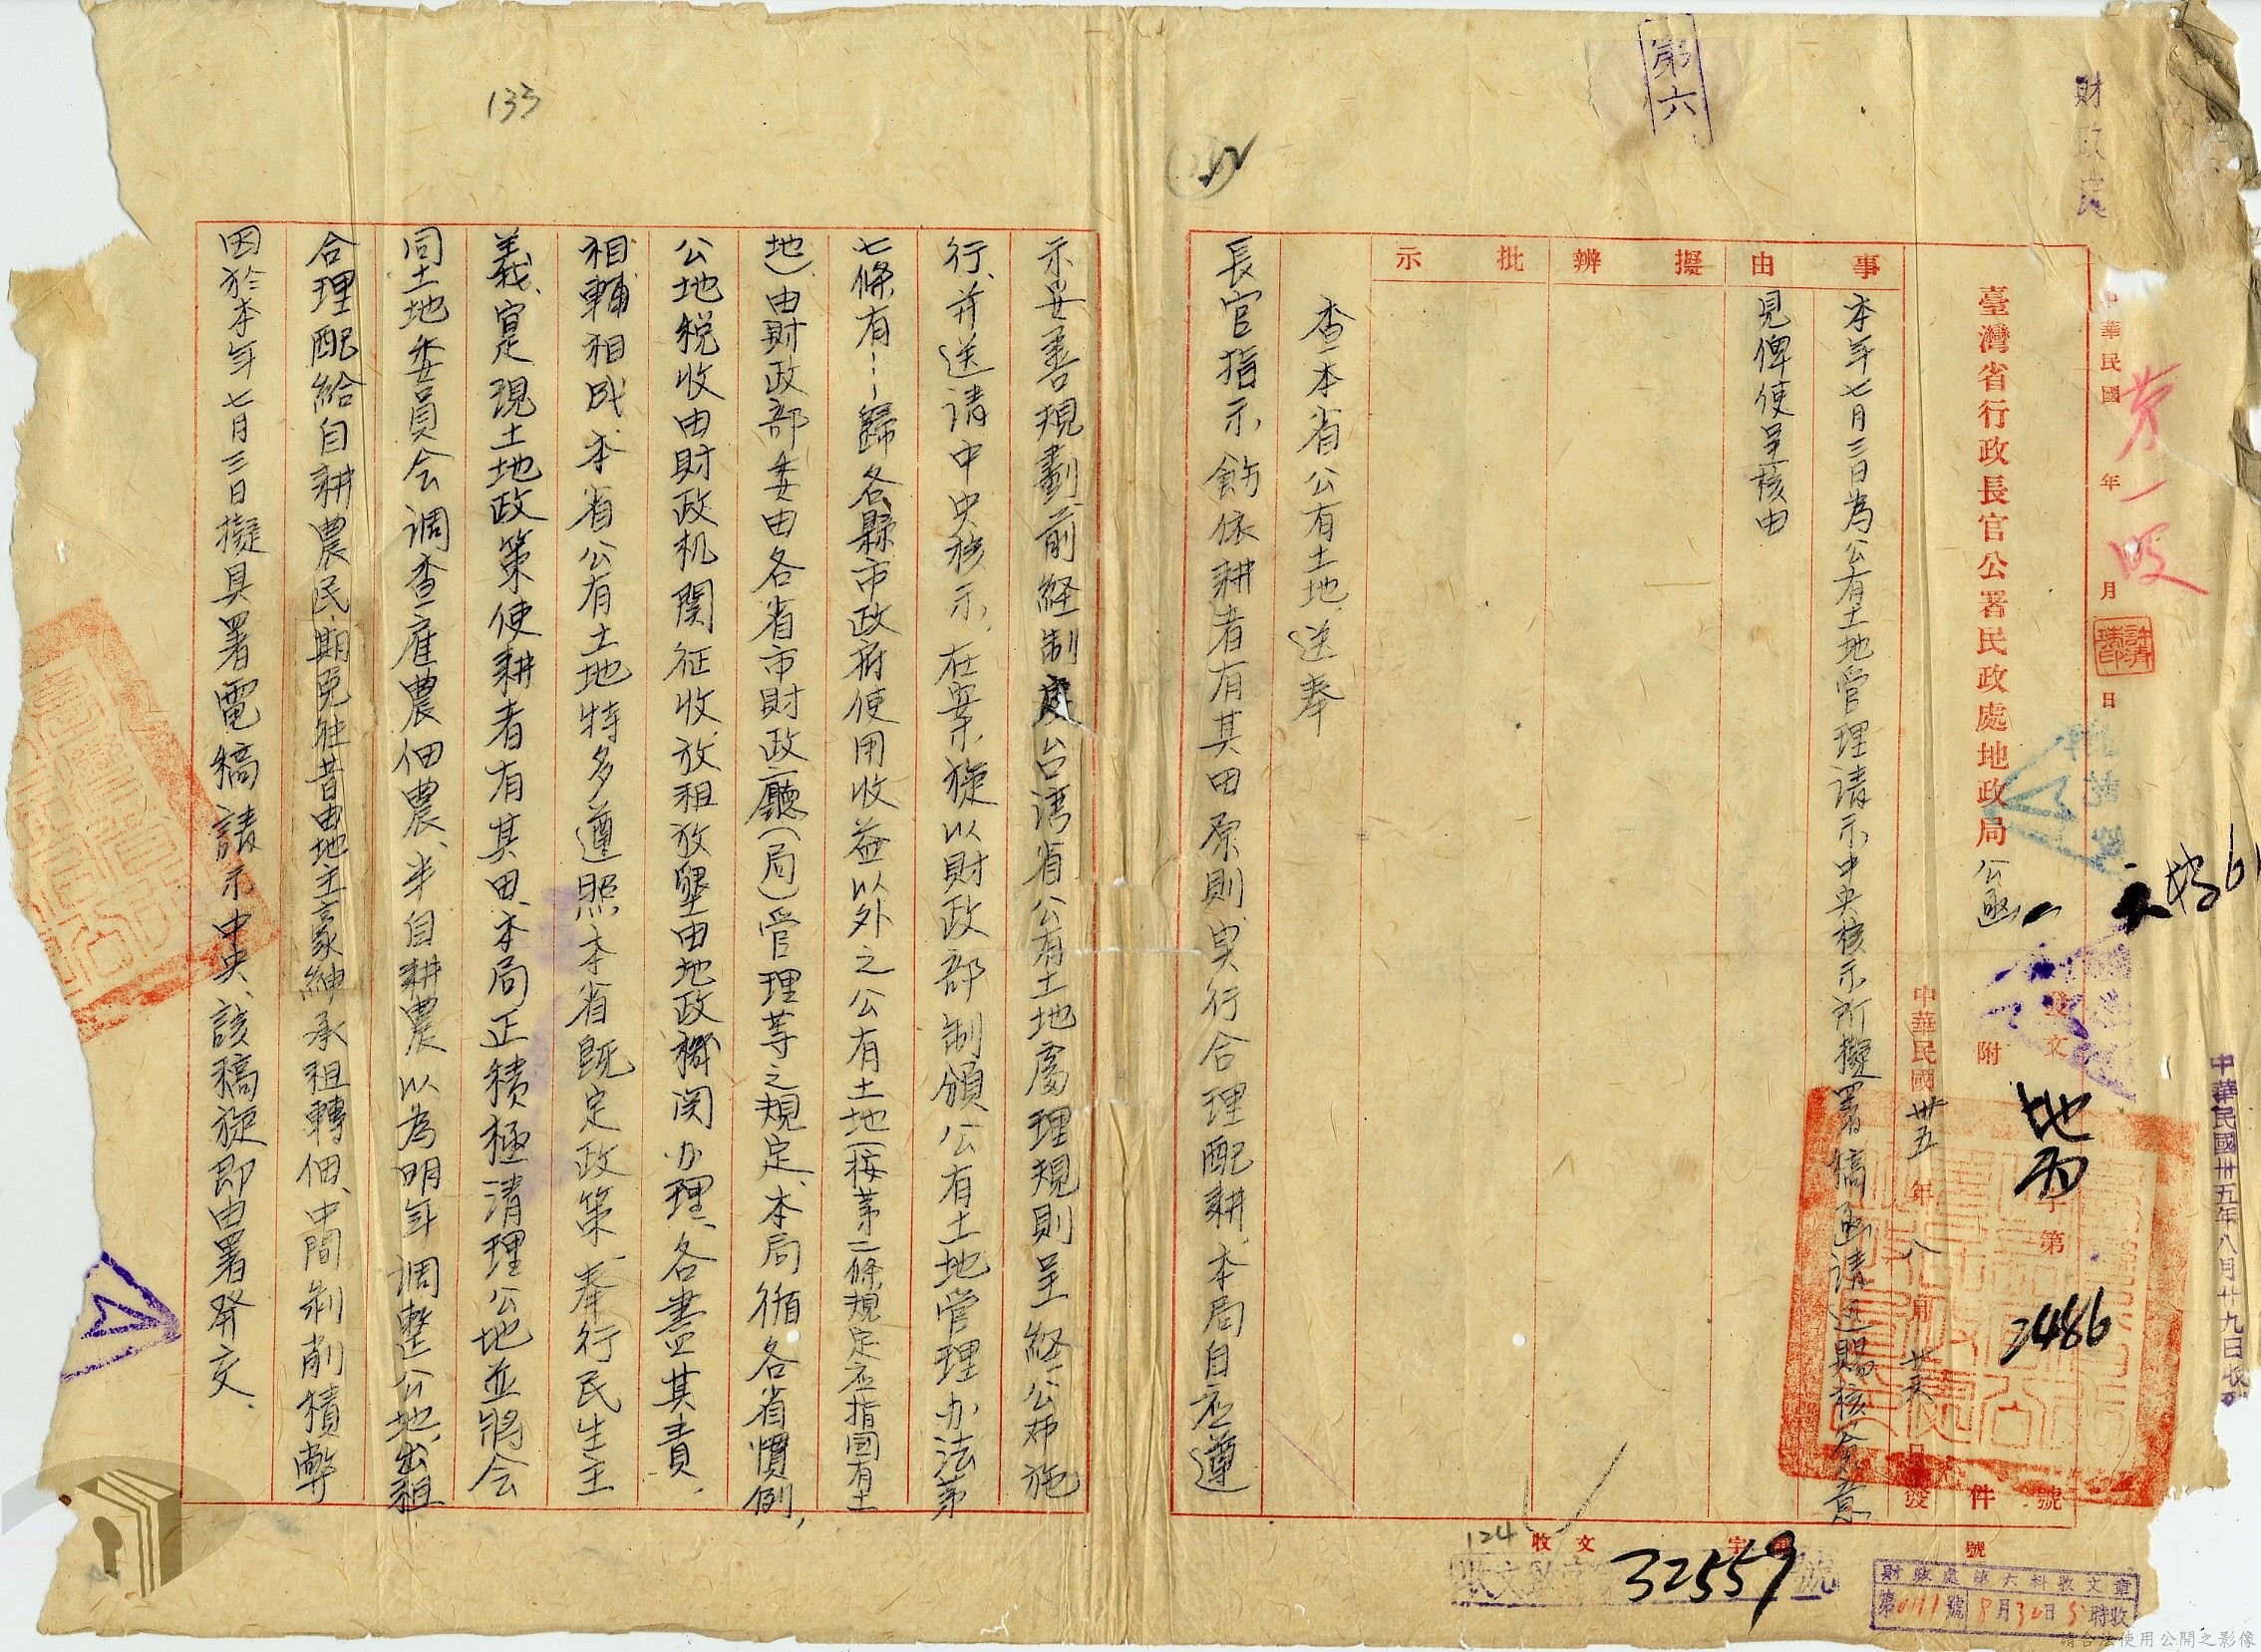 財政處
第六
133
中華民國 年 月 日
臺灣省行政長官公署民政處地政局公函
發文 地丙字第2486號
附 件
中華民國卅五年八月 日發
中華民國卅五年八月廿九日
事由
本年七月三日為公有土地管理請示中央核示所擬署稿函請迅賜核簽意
見俾使呈核由
擬辨
批示
查本省公有土地送奉
長官指示,飭依耕者有其田原則,実行合理配耕,本局自应遵
示妥善規劃,前経制定台湾省公有土地處理規則呈経公布施
行、并送請中央核示,在案,旋以財政部制頒公有土地管理办法第
七條有……歸各縣市政府使用收益以外之公有土地(按第二條規定应指國有土
地)由財政部委由各省市財政廳(局)管理等之規定、本局循各省慣例,
公地税收由財政机関征收、放租放墾由地政機関办理、各盡其責.
相輔相成、本省公有土地特多遵照本省既定政策、奉行民生主
義、實是現土地政策使耕者有其田、本局正積極清理公地並將会
同土地委員会調查雇農佃農、半自耕農以為明年調整公地出租
合理配給自耕農民、期免往昔由地主豪紳承租轉佃、中間剝削積弊
因於本年七月三日擬具署電稿請示中央、該稿旋即由署發交.
收文 字 號
32559
124
財政處第六科收文章
第 號 8月30日5時收
請合法使用公開之影像